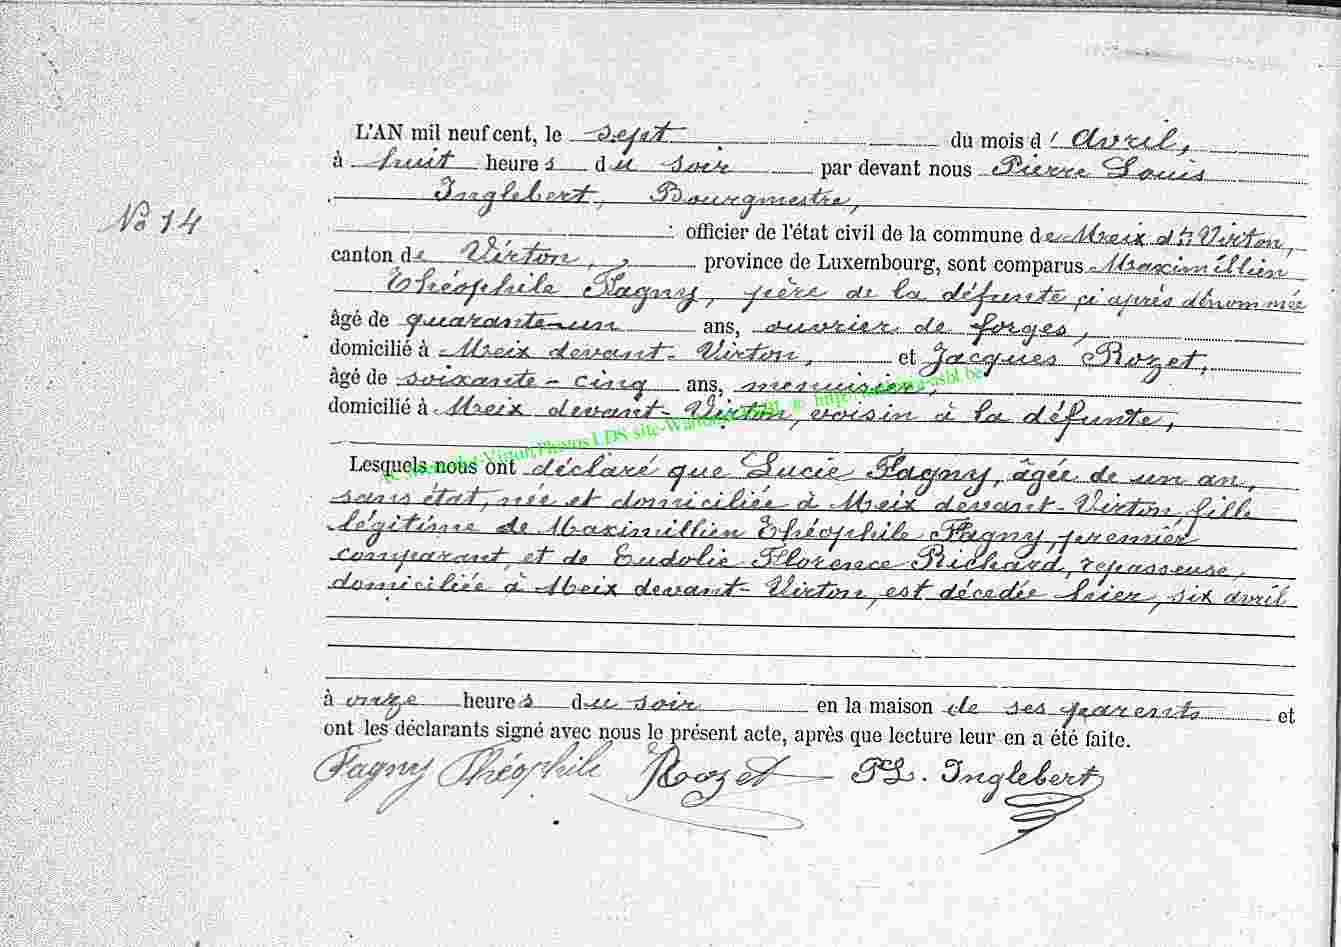 L'AN mil neuf cent, le sept du mois d' avril,
à huit heures du soir par devant nous Pierre Louis
Inglebert, Bourgmestre,
No 14
officier de l'état civil de la commune de Meix dt Virton,
canton de Virton, province de Luxembourg, sont comparus Maximillien
Théophile Fagny, père de la défunte ci après dénommée
âgé de quarante-un ans, ouvrier de forges,
domicilié à Meix devant-Virton, et Jacques Rozet,
âgé de soixante-cinq ans, menuisier,
domicilié à Meix devant-Virton, voisin à la défunte,
Lesquels nous ont déclaré que Lucie Fagny, âgée de un an,
sans état, née et domiciliée à Meix devant-Virton, fille
légitime de Maximillien Théophile Fagny, premier
comparant, et de Eudolie Florence Richard, repasseuse,
domiciliée à Meix devant-Virton, est décédée hier, six avril
à onze heures du soir en la maison de ses parents et
ont les déclarants signé avec nous le présent acte, après que lecture leur en a été faite.
Fagny Théophile Rozet PL. Inglebert